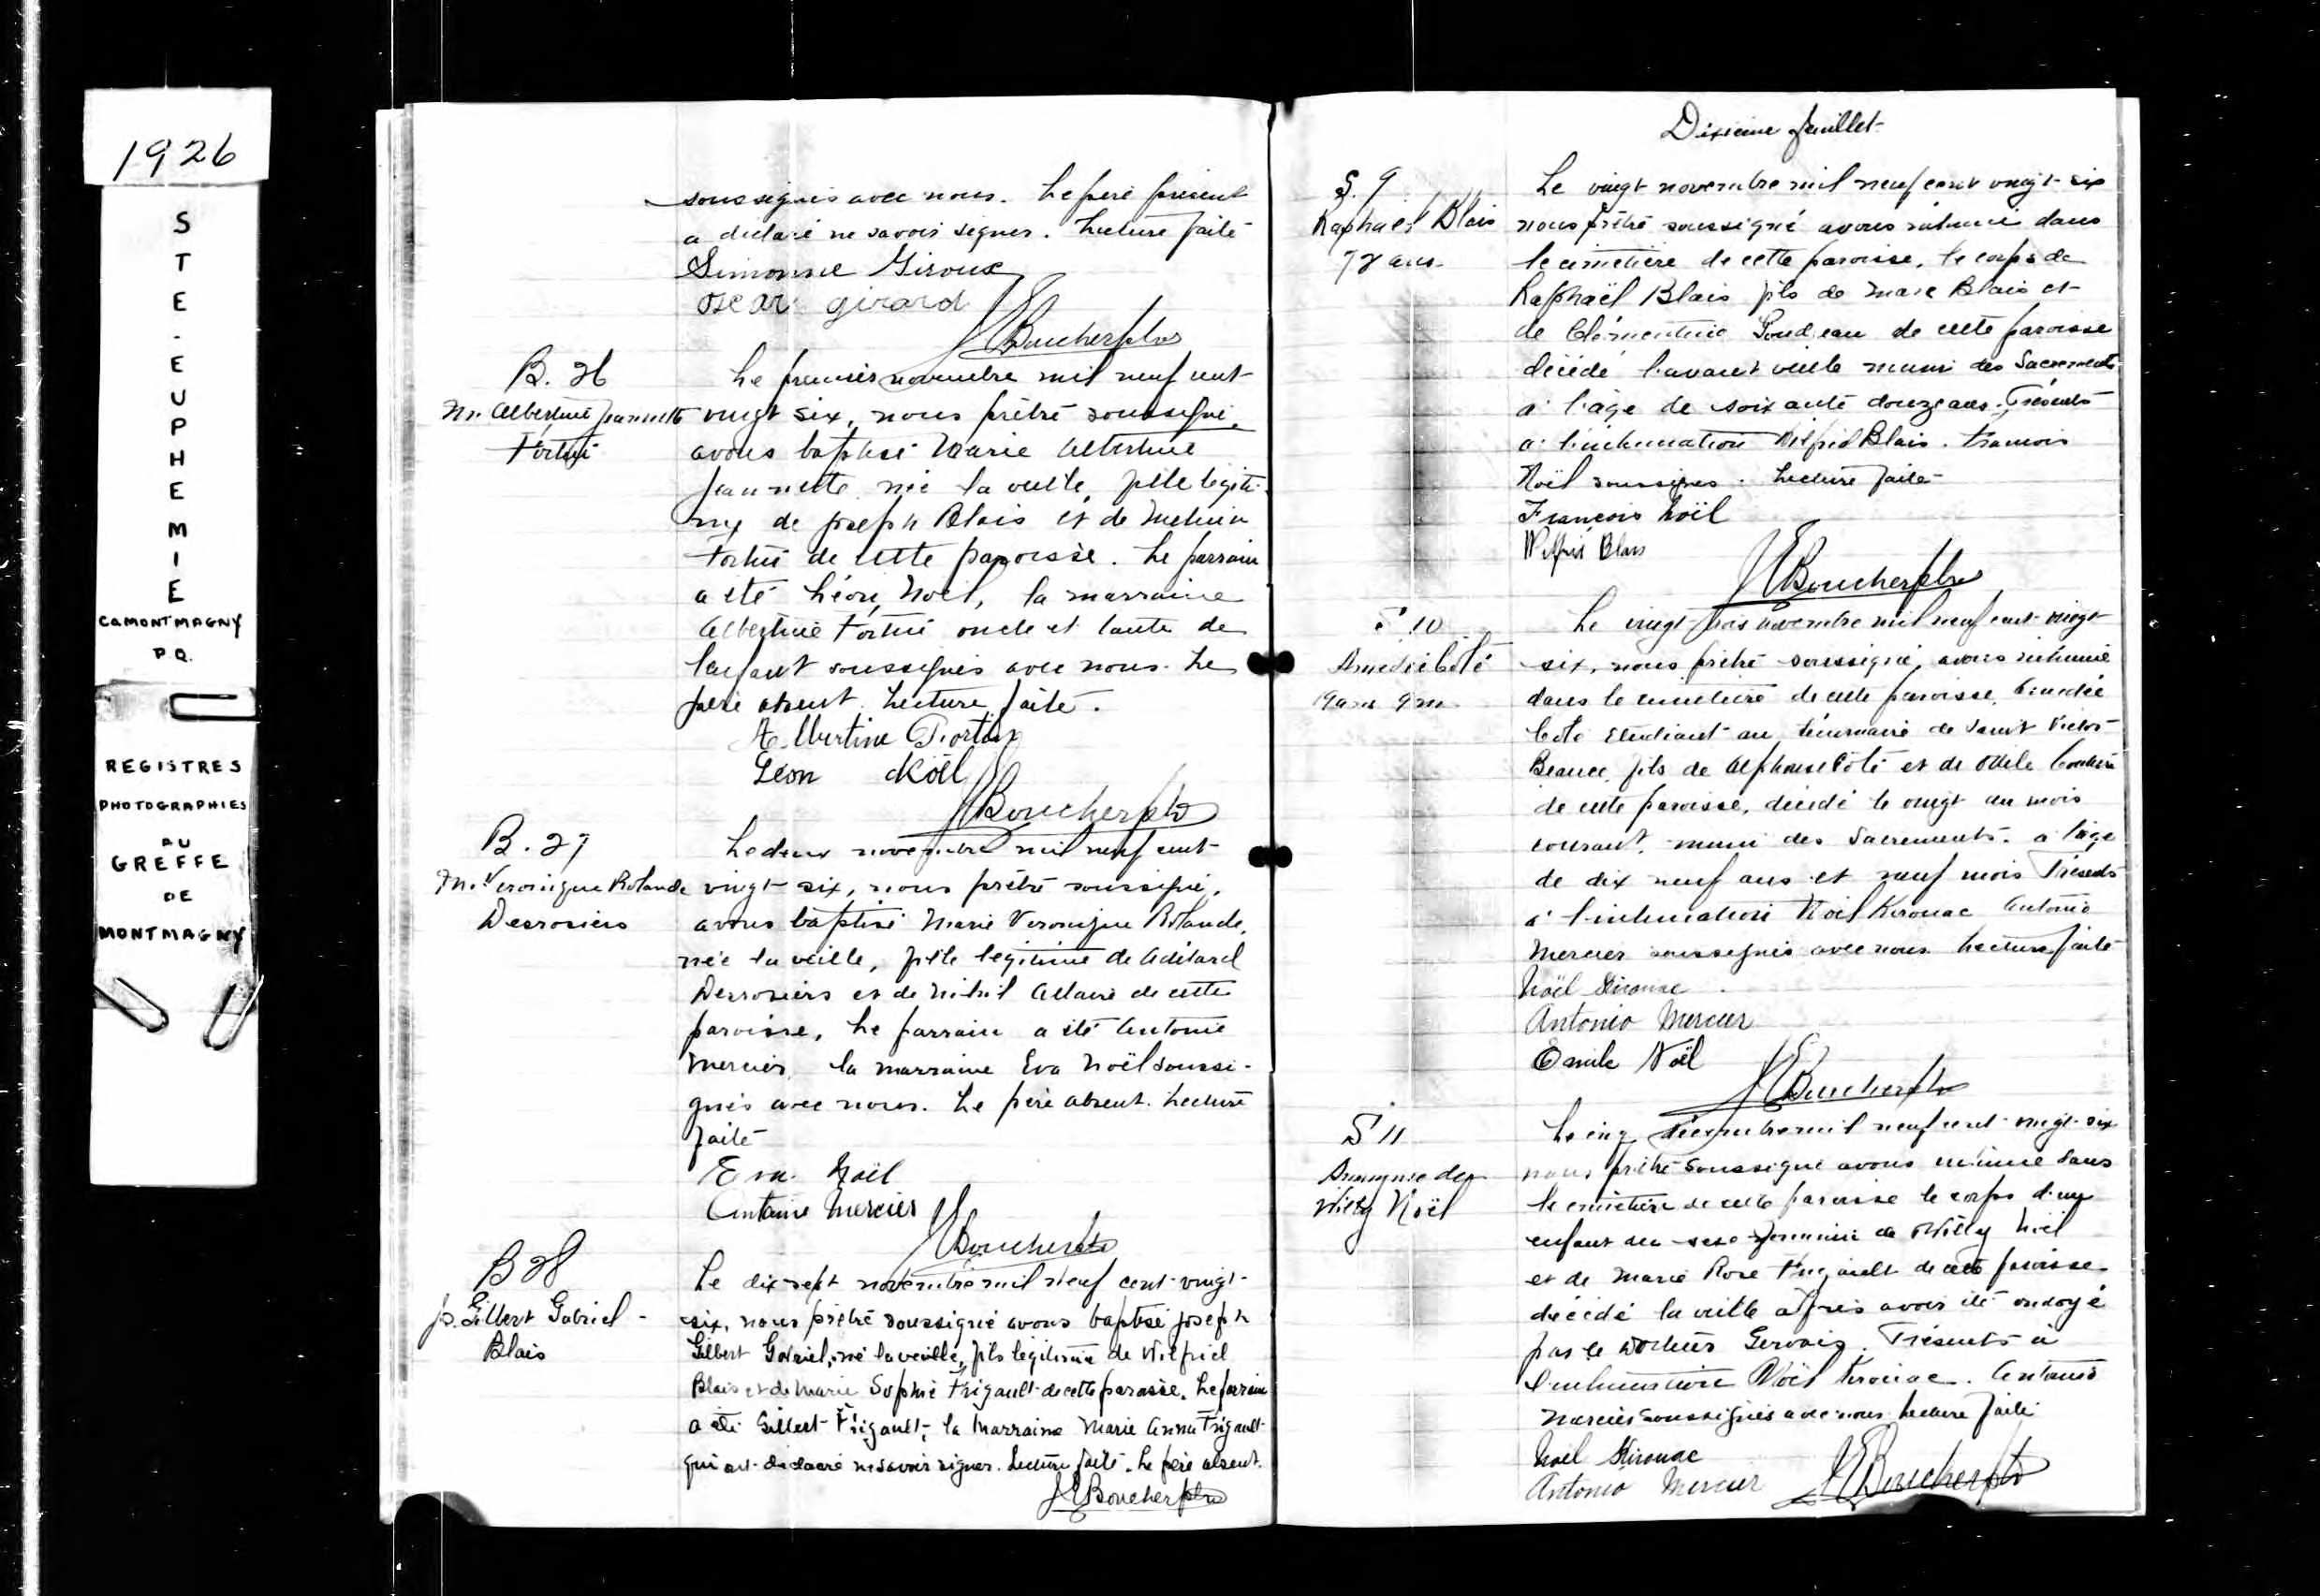 1926
STE-EUPHEMIE
Co MONTMAGNY
P Q.
REGISTRES
PHOTOGRAPHIES
AU
GREFFE
DE
MONTMAGNY
soussignés avec nous. Le père présent
a déclaré ne savoir signer. Lecture faite
Simonne Giroux
Oscar girard
J E Boucher ptre
B. 26
M. Albertine Jeannette
Fortin
Le premier novembre mil neuf cent
vingt six, nous prêtre soussigné,
avons baptisé Marie Albertine
Jeannette née la veille, fille légiti-
me de Joseph Blais et de
Fortin de cette paroisse. Le parrain
a été Léon Noël, la marraine
Albertine Fortin oncle et tante de
l'enfant soussignés avec nous. Le
père absent. Lecture faite.
Albertine Fortin
Léon Noël
J E Boucher ptre
B. 27
M. Veronique Rolande
Desrosiers
Le deux novembre mil neuf cent
vingt six, nous prêtre soussigné,
avons baptisé Marie Veronique Rolande,
née la veille, fille légitime de Adélard
Desrosiers et de Allaire de cette
paroisse. Le parrain a été Antonio
Mercier, la marraine Eva Noël soussi-
gnés avec nous. Le père absent. Lecture
faite
Eva Noël
Antonio Mercier
J E Boucher ptre
B 28
Js. Gilbert Gabriel
Blais
Le dix-sept novembre mil neuf cent-vingt-
six, nous prêtre soussigné avons baptisé joseph
Gilbert Gabriel, né la veille, fils légitime de Wilfrid
Blais et de Marie Sophie Frigault de cette paroisse. Le parrain
a été Gilbert Frigault, la Marraine Marie Anna Frigault
qui ont déclaré ne savoir signer. Lecture faite. Le père absent.
J E Boucher ptre
Dixième feuillet
S. 9
Raphael Blais
72 ans
Le vingt novembre mil neuf cent vingt-six
nous prêtre soussigné avons inhumé dans
le cimetière de cette paroisse, le corps de
Raphaël Blais fils de Marc Blais et
de Clémentine de cette paroisse
décédé l'avant veille muni des Sacrements
à l'âge de soixante douze ans. Présents
à l'inhumation Wilfrid Blais. François
Noël soussignés. Lecture faite
François Noël
Wilfrid Blais
J E Boucher ptre
S 10
Amedée Coté
19 ans 9 m
Le vingt trois novembre mil neuf cent-vingt
six, nous prêtre soussigné, avons inhumé
dans le cimetière de cette paroisse, Amedée
Coté étudiant au Séminaire de Saint Victor
Beauce, fils de Alphonse Côté et de
de cette paroisse, décédé le vingt du mois
courant, muni des Sacrements. a l'âge
de dix neuf ans et neuf mois Présents
à l'inhumation Noël Kirouac Antonio
Mercier soussignés avec nous. Lecture faite
Noël Kirouac
Antonio Mercier
Emile Noël
J E Boucher ptre
S 11
Anonyme de
Willy Noël
Le cinq décembre mil neuf cent-vingt-six
nous prêtre soussigné avons inhumé dans
le cimetière de cette paroisse le corps d'un
enfant du sexe féminin de Willy Noël
et de Marie Rose de cette paroisse
décédé la veille après avoir été ondoyé
par le docteur Gervais. Présents à
l'inhumation Noël Kirouac. Antonio
Mercier soussignés avec nous. Lecture faite
Noël Kirouac
Antonio Mercier
J E Boucher ptre